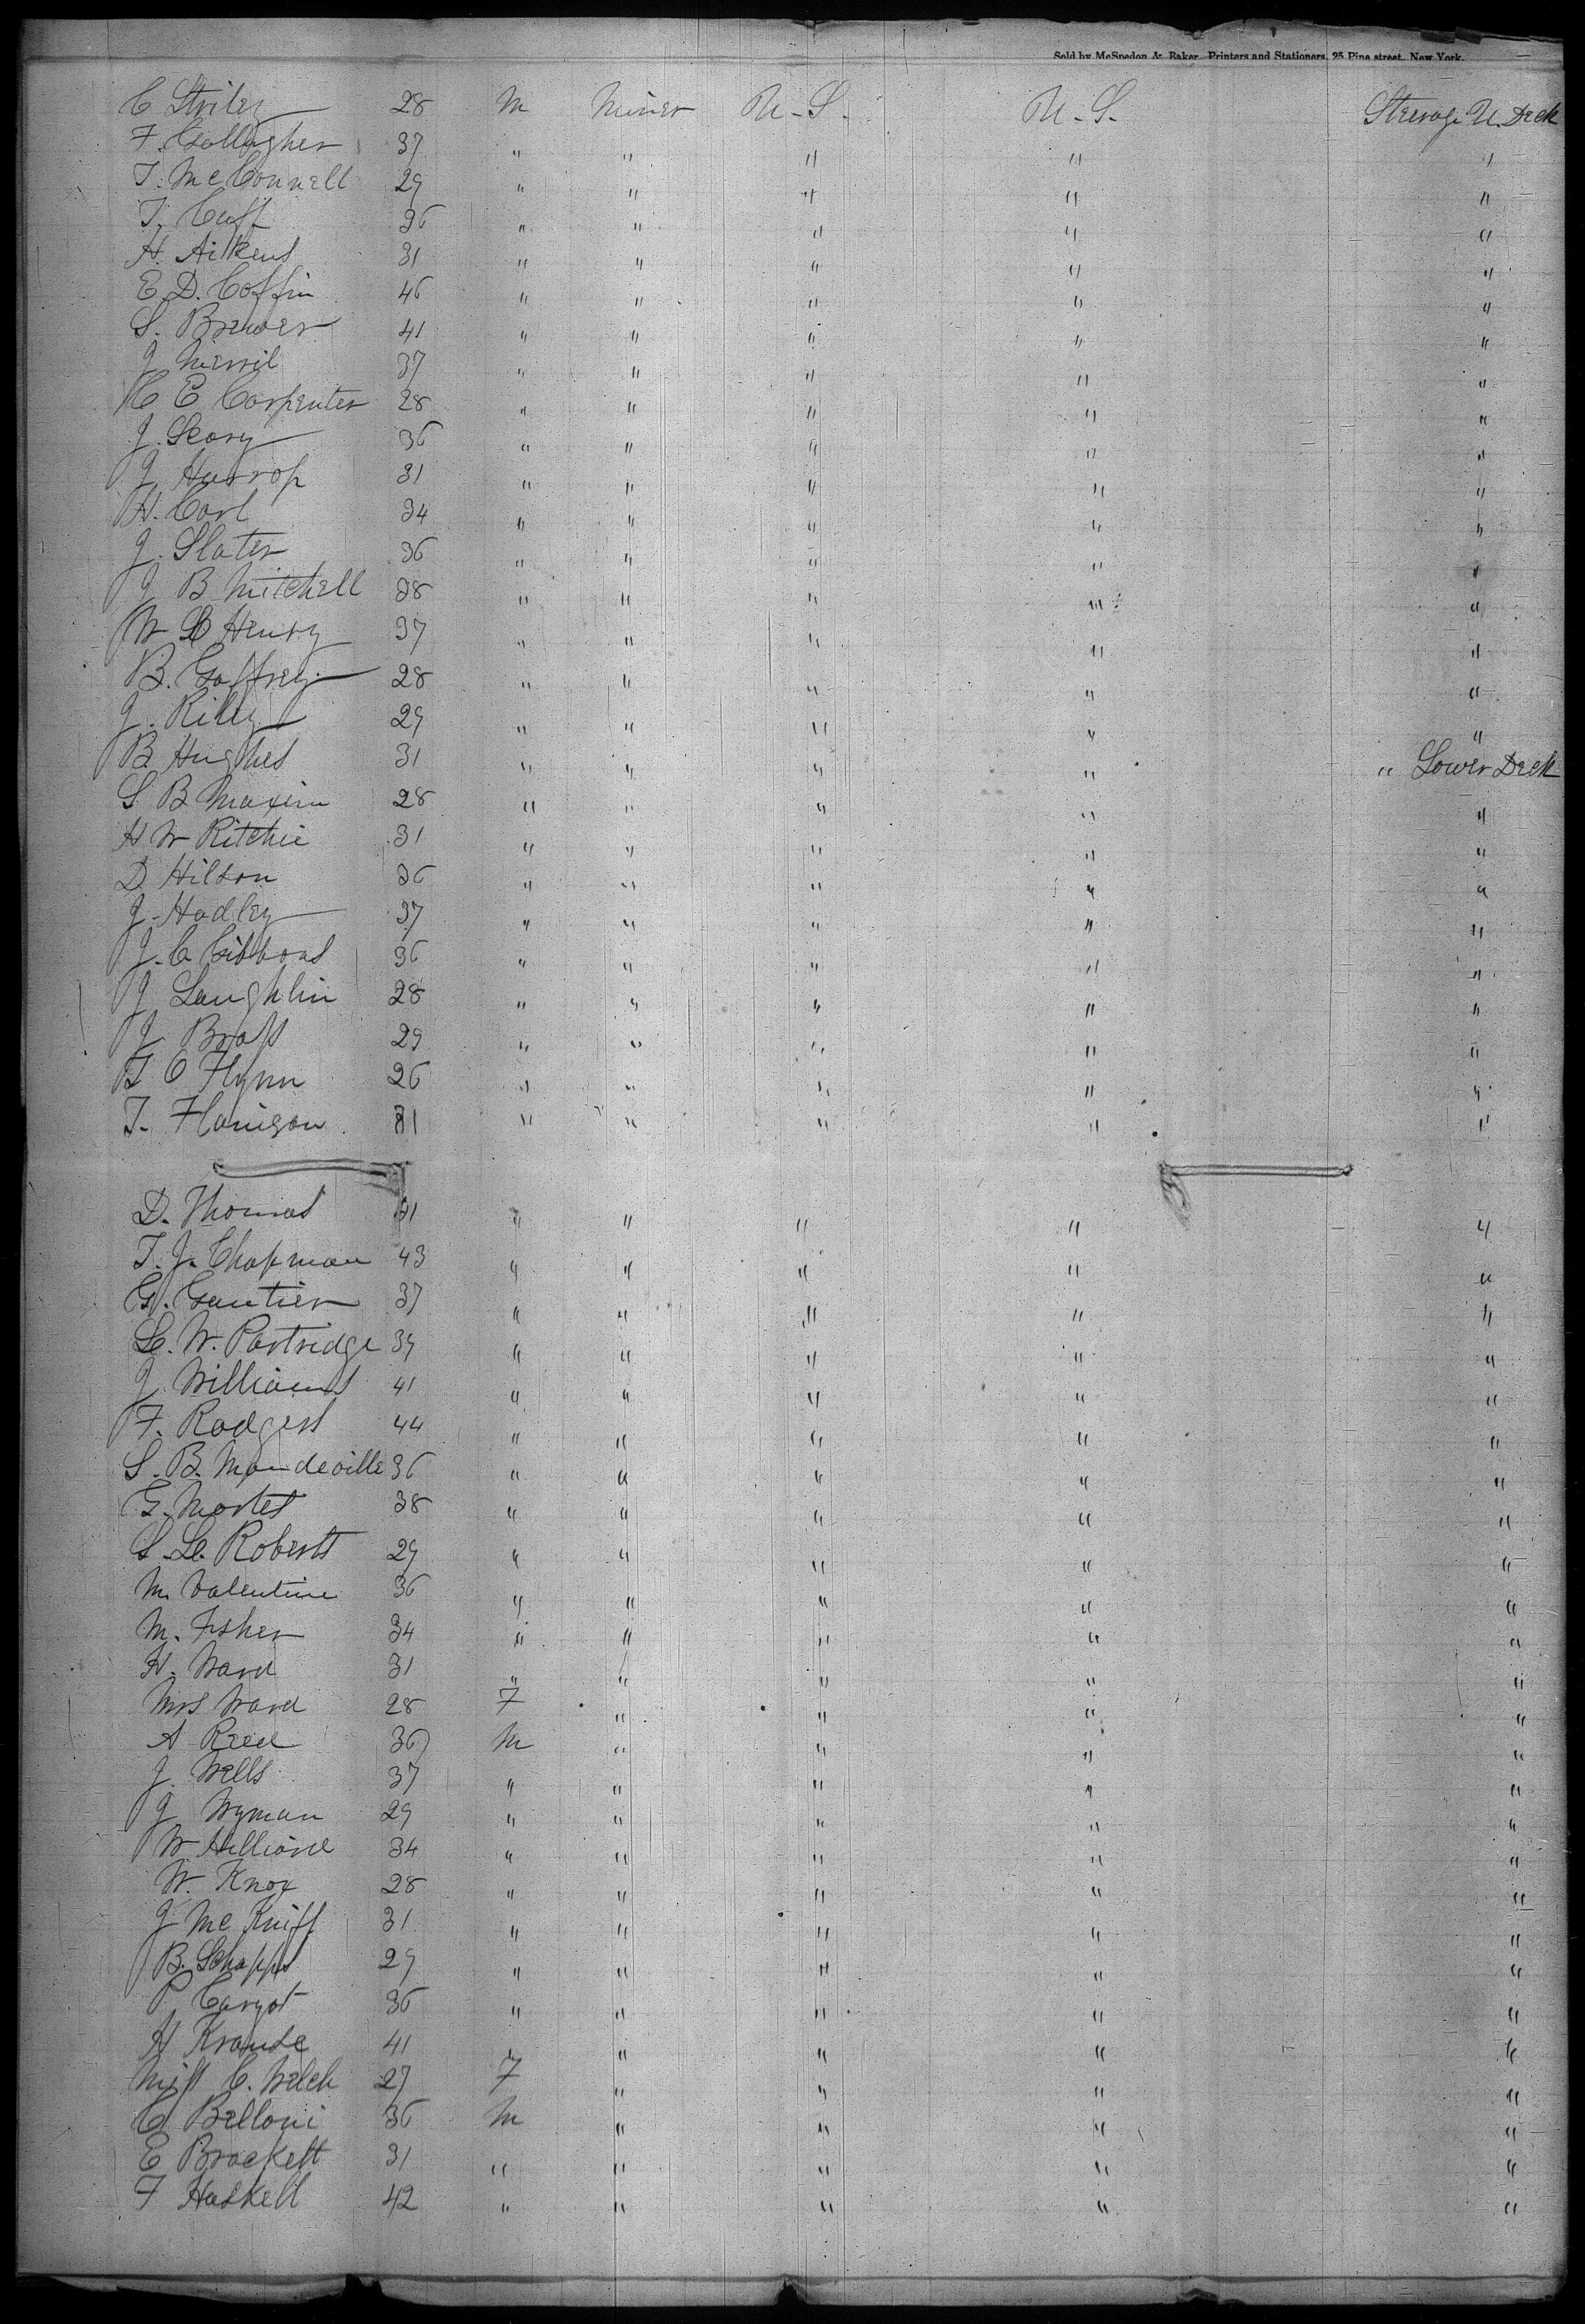 Sold by McSpedon & Baker, Printers and Stationers, 25 Pine street, New York.
C Striley 28 M Miner U.S. U.S. Steerage U. Deck
F. Gallagher 37 " " " " "
T. McConnell 29 " " " " "
T. Cuff 36 " " " " "
H. Aikens 31 " " " " "
E. D. Coffin 46 " " " " "
S. Brewer 41 " " " " "
J Merril 37 " " " " "
H C Carpenter 28 " " " " "
J. Seary 36 " " " " "
J. Harrop 31 " " " " "
H. Carl 34 " " " " "
J. Slater 36 " " " " "
J B Mitchell 38 " " " " "
W L Henry 37 " " " " "
B. Gaffrey 28 " " " " "
J. Riley 29 " " " " "
B Hughes 31 " " " " " Lower Deck
S. B Maxim 28 " " " " "
H W Ritchie 31 " " " " "
D. Hilson 36 " " " " "
J. Hadley 37 " " " " "
J. C. Gibbons 36 " " " " "
J Laughlin 28 " " " " "
J Brass 29 " " " " "
T O Flynn 26 " " " " "
T. Flanigan 31 " " " " "
D. Thomas 41 " " " " "
T. J. Chapman 43 " " " " "
G. Gautier 37 " " " " "
L. W. Partridge 39 " " " " "
J. Williams 41 " " " " "
F. Rodgers 44 " " " " "
S. B. Mandeville 36 " " " " "
G. Mortes 38 " " " " "
S. L. Roberts 29 " " " " "
M. Valentine 36 " " " " "
M. Fisher 34 " " " " "
H. Ward 31 " " " " "
Mrs Ward 28 F " " " "
A Reed 36 M " " " "
J. Wells 37 " " " " "
J Wyman 29 " " " " "
W Hilliard 34 " " " " "
W. Knox 28 " " " " "
J McKniff 31 " " " " "
B. Schapps 29 " " " " "
P. Cargot 36 " " " " "
H Krause 41 " " " " "
Miss C. Welch 27 F " " " "
C Belloni 36 M " " " "
E Brackett 31 " " " " "
F Haskell 42 " " " " "